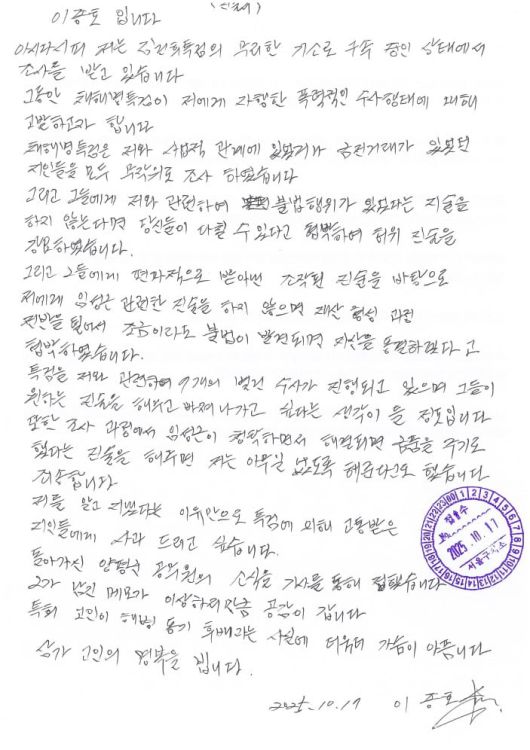 이종호 입니다
아시다시피 저는 김건희특검의 무리한 기소로 구속 중인 상태에서
조사를 받고 있습니다
그동안 채해병특검이 저에게 자행한 폭력적인 수사행태에 대해
고발하고자 합니다
채해병특검은 저와 사업적 관계에 있었거나 금전거래가 있었던
지인들을 모두 무작위로 조사 하였습니다
그리고 그들에게 저와 관련하여 불법행위가 있었다는 진술을
하지 않는다면 당신들이 다칠 수 있다고 협박하여 허위 진술을
강요하였습니다.
그리고 그들에게 편파적으로 받아낸 조작된 진술을 바탕으로
저에게 임성근 관련한 진술을 하지 않으면 재산 형성 과정
전반을 털어서 조금이라도 불법이 발견되면 자산을 동결하겠다고
협박하였습니다.
특검을 저와 관련하여 9개의 별건 수사가 진행되고 있으며 그들이
원하는 진술을 해주고 빠져나가고 싶다는 생각이 들 정도입니다
또한 조사 과정에서 임성근이 청탁하면서 해결되면 금품을 주기로
했다는 진술을 해주면 저는 아무일 없도록 해준다고도 했습니다
죄송합니다
저를 알고 지냈다는 이유만으로 특검에 의해 고통받은
지인들에게 사과 드리고 싶습니다.
돌아가신 양평군 공무원의 소식을 기사를 통해 접했습니다
그가 남긴 메모가 이상하리만큼 공감이 갑니다
특히 고인이 해병 동기 후배라는 사실에 더욱더 가슴이 아픕니다
삼가 고인의 명복을 빕니다.
2025.10.17 이종호
접수
2025.10.17
서울구치소